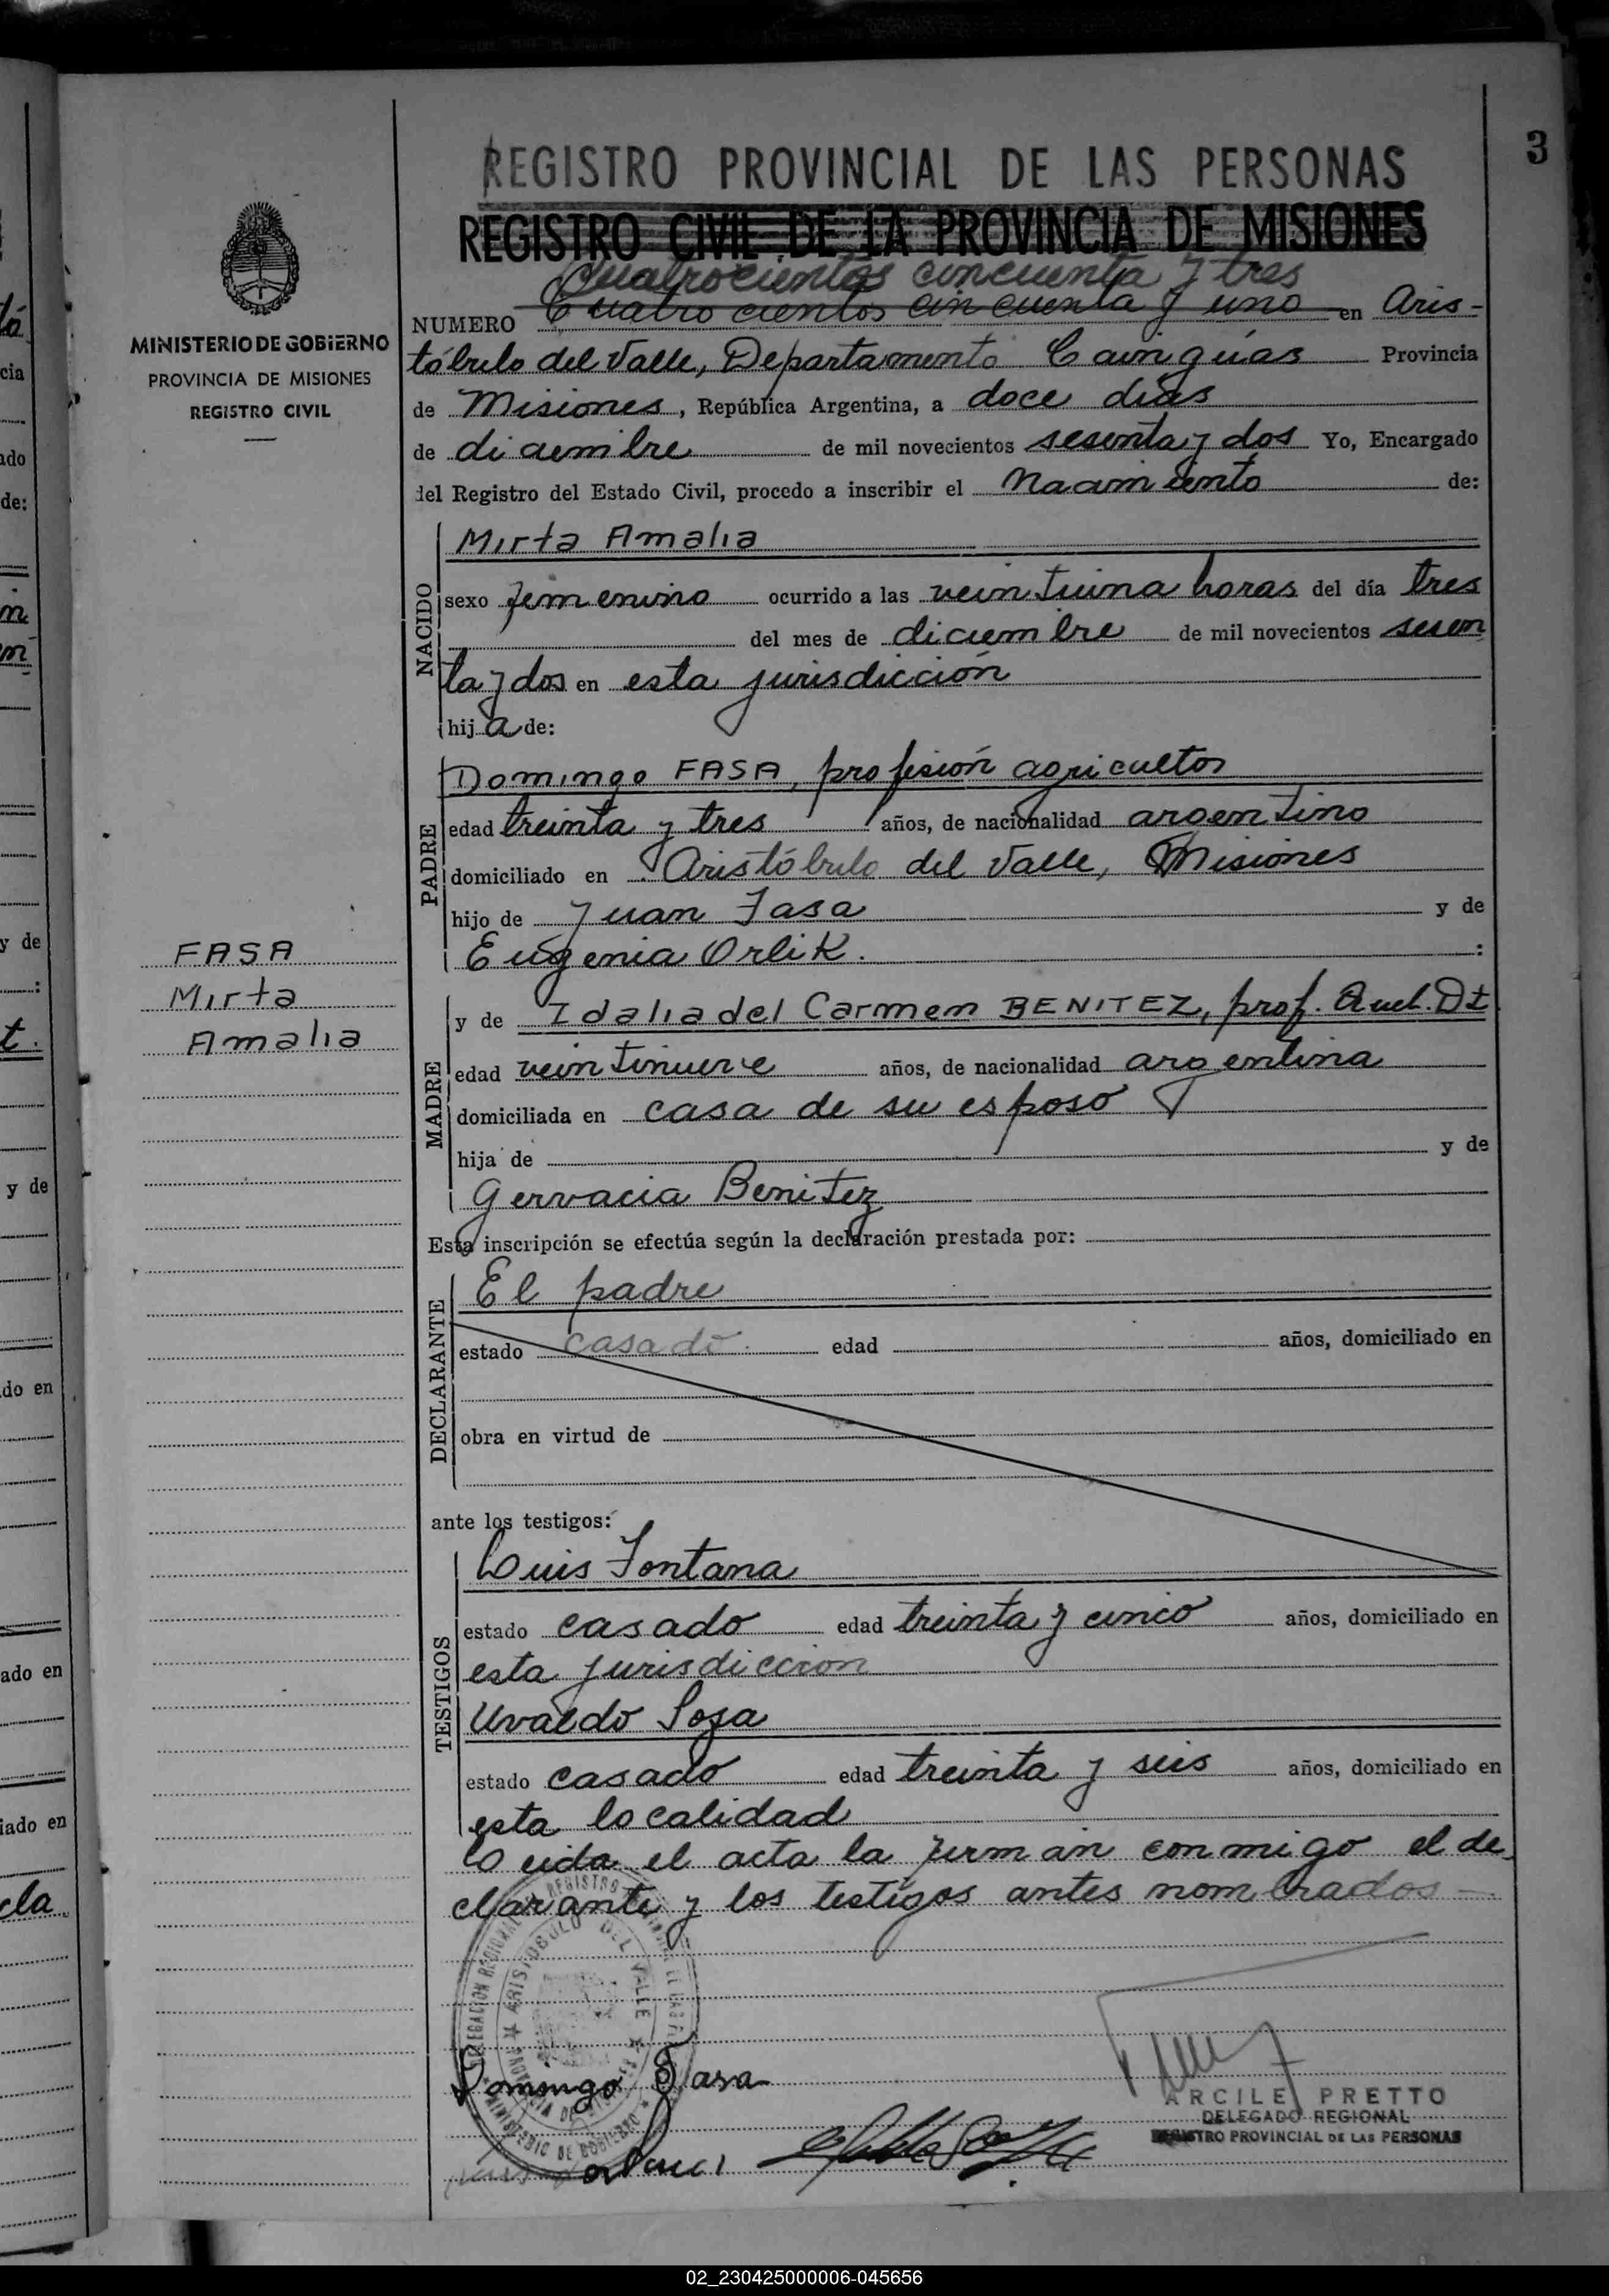 3
REGISTRO PROVINCIAL DE LAS PERSONAS
REGISTRO CIVIL DE LA PROVINCIA DE MISIONES
MINISTERIO DE GOBIERNO
PROVINCIA DE MISIONES
REGISTRO CIVIL
Cuatrocientos cincuenta y tres
NUMERO Cuatro cientos cincuenta y uno en Aris-
tóbulo del Valle, Departamento Cainguás Provincia
de Misiones, República Argentina, a doce días
de diciembre de mil novecientos sesenta y dos Yo, Encargado
del Registro del Estado Civil, procedo a inscribir el Nacimiento de:
NACIDO
Mirta Amalia
sexo femenino ocurrido a las veintiuna horas del día tres
del mes de diciembre de mil novecientos sesen
ta y dos en esta jurisdicción
hija de:
PADRE
Domingo FASA, profesión agricultor
edad treinta y tres años, de nacionalidad argentino
domiciliado en Aristóbulo del Valle, Misiones
hijo de Juan Fasa y de
Eugenia Orlik. :
FASA
Mirta
Amalia
MADRE
y de Idalia del Carmen BENITEZ, prof. Queh. Dt
edad veintinueve años, de nacionalidad argentina
domiciliada en casa de su esposo
hija de y de
Gervacia Benitez
Esta inscripción se efectúa según la declaración prestada por:
DECLARANTE
El padre
estado casado. edad años, domiciliado en
obra en virtud de
ante los testigos:
TESTIGOS
Luis Fontana
estado casado edad treinta y cinco años, domiciliado en
esta jurisdiccion
Uvaldo Sosa
estado casado edad treinta y seis años, domiciliado en
esta localidad
Leida el acta la firman conmigo el de
clarante y los testigos antes nombrados-
DELEGACION REGIONAL
ARISTOBULO DEL VALLE
MINISTERIO DE GOBIERNO
Domingo Fasa
ARCILE PRETTO
DELEGADO REGIONAL
REGISTRO PROVINCIAL DE LAS PERSONAS
lá
cia
ado
de:
y de
:
t.
y de
do en
ado en
iado en
cla
02_230425000006-045656